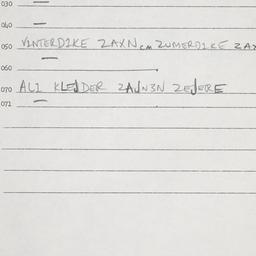 030
040
050 VINTERDIKE ZAXN cm ZUMERDIKE ZAX
060
070 ALI KLEJDER ZAJN3N ZEJERE
071